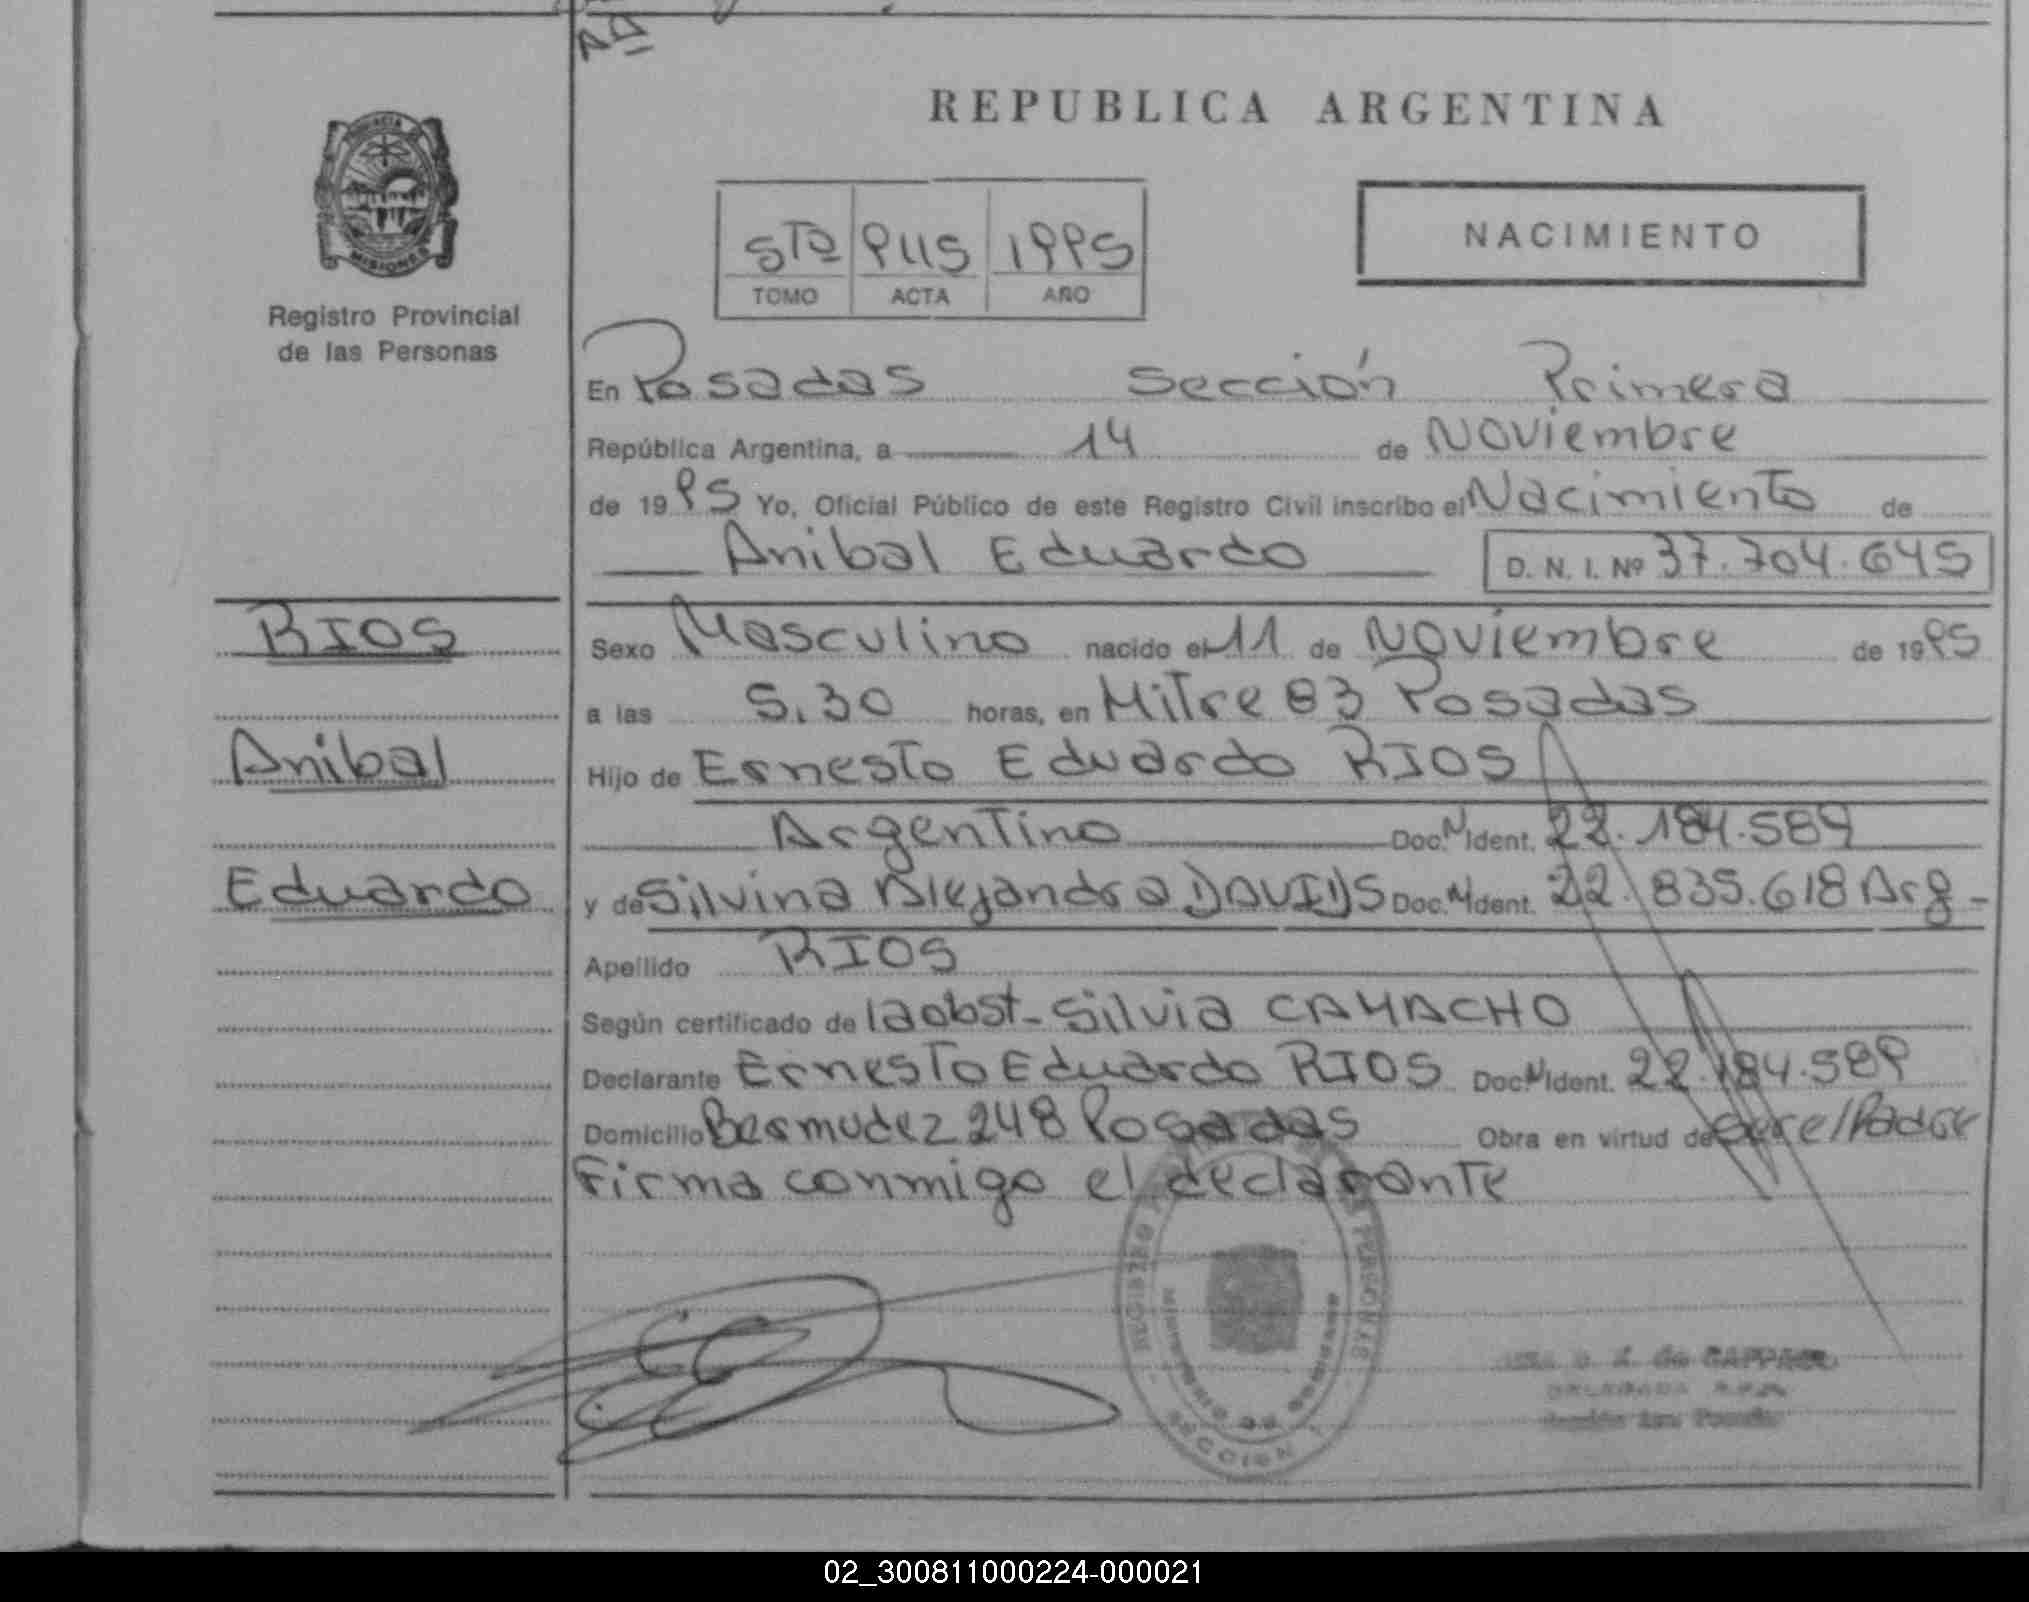 REPUBLICA ARGENTINA
PROVINCIA DE
MISIONES
Registro Provincial
de las Personas
5to 9115 1995
TOMO ACTA AÑO
NACIMIENTO
En Posadas Sección Primera
República Argentina, a 14 de Noviembre
de 1995 Yo, Oficial Público de este Registro Civil inscribo el Nacimiento de
Anibal Eduardo D. N. I. Nº 37.704.645
RIOS
Anibal
Eduardo
Sexo Masculino nacido el 11 de Noviembre de 1995
a las 5.30 horas, en Mitre 83 Posadas
Hijo de Ernesto Eduardo RIOS
Argentino Doc. N. Ident. 22.184.589
y de Silvina Alejandra DAVIDS Doc. N. Ident. 22.835.618 Arg-
Apellido RIOS
Según certificado de la obst- Silvia CAMACHO
Declarante Ernesto Eduardo RIOS Doc. N. Ident. 22.184.589
Domicilio Bermudez 248 Posadas Obra en virtud de ser el Padre
Firma conmigo el declarante
REGISTRO PERSONAS
MINISTERIO DE GOBIERNO
SECCION 1
02_300811000224-000021